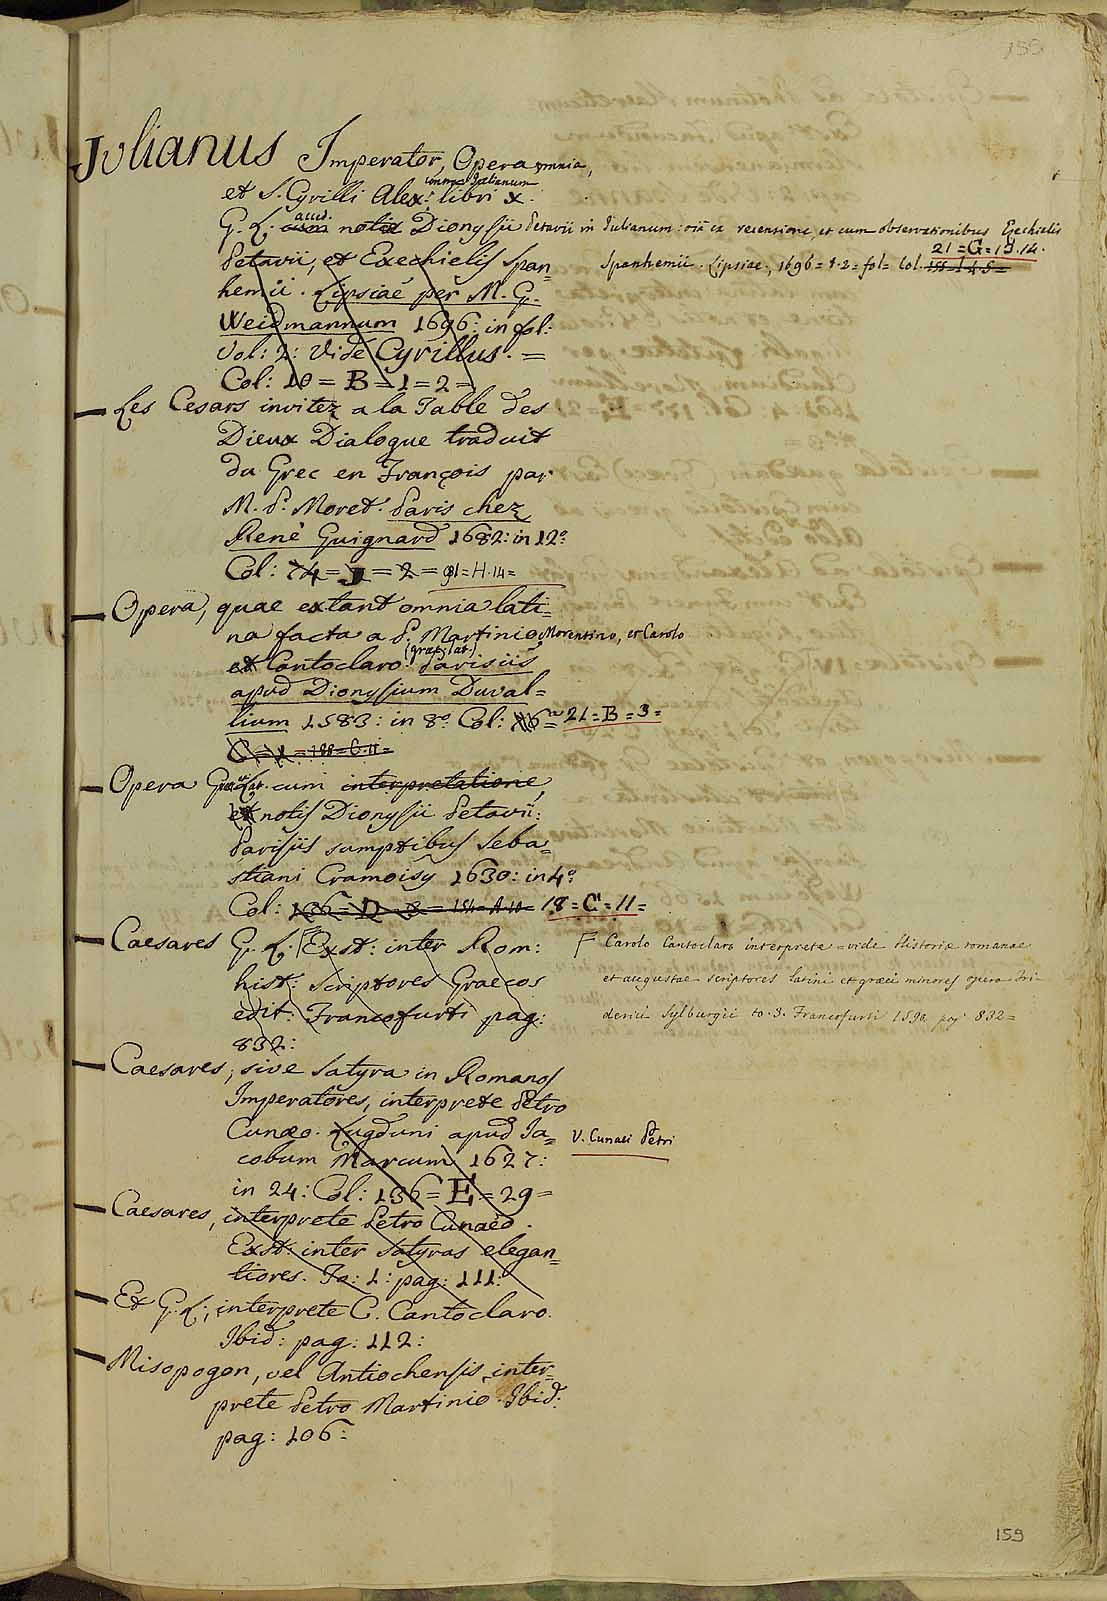 159
Julianus Imperator, Opera omnia,
contra Julianum
et S. Cyrilli Alex: libri x.
accid.
G. L. cum notis Dionysii Petavii in Julianum: ex recensione, et cum observationibus Ezechielis
21=G=13.14.
Petavii, et Exechielis Span= Spanhemii. Lipsiae, 1696= t.2= fol= Col.
hemii. Lipsiae per M. G.
Weidmannum 1696: in fol:
Vol: 2: Vide Cyrillus. =
Col: 10 = B = 1 = 2 =
Les Cesars invitez a la Table des
Dieux Dialogue traduit
du Grec en François par
M. d. Moret. Paris chez
René Guignard 1682: in 12°
Col: 74 = J = 2 = 91=H.14=
Opera, quae extant omnia lati=
na facta a P. Martinio, Morentino, et Carolo
(graec, lat.)
et Cantoclaro. Parisiis
apud Dionysium Duval=
lium 1583: in 8° Col: 21=B=3=
C = 1 = 188=C.11=
Opera Graec. Lat. cum interpretatione,
et notis Dionysii Petavii:
Parisiis sumptibus Seba=
stiani Cramoisy 1630: in 4°
Col: 136 = D = 3 = 154=A.10= 18=C=11=
Caesares G. L. Exst: inter Rom: F Carolo Cantoclaro interprete = vide Historiae romanae
hist: Scriptores Graecos et augustae scriptores latini et graeci minores opera Fri=
edit: Francofurti pag: derici Sylburgii to.3. Francofurti 1590 pag. 832=
832:
Caesares, sive Satyra in Romanos
Imperatores, interprete Petro
Cunaeo. Lugduni apud Ja= V. Cunaei Petri
cobum Marcum 1627:
in 24: Col: 136 = E = 29 =
Caesares, interprete Petro Cunaeo.
Exst: inter Satyras elegan=
tiores. To: 1: pag: 111:
Et G. L; interprete C. Cantoclaro.
Ibid: pag: 112:
Misopogon, vel Antiochensis, inter=
prete Petro Martinio. Ibid:
pag: 106:
159